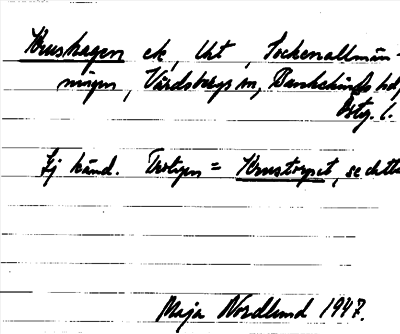 Krushagen ek, Ukt, Sockenallmän-
ningen, Vårdsbergs sn, Bankekinds hd,
Östg. l.
Ej känd. Troligen = Krustorpet, se detta
Maja Nordlund 1947.